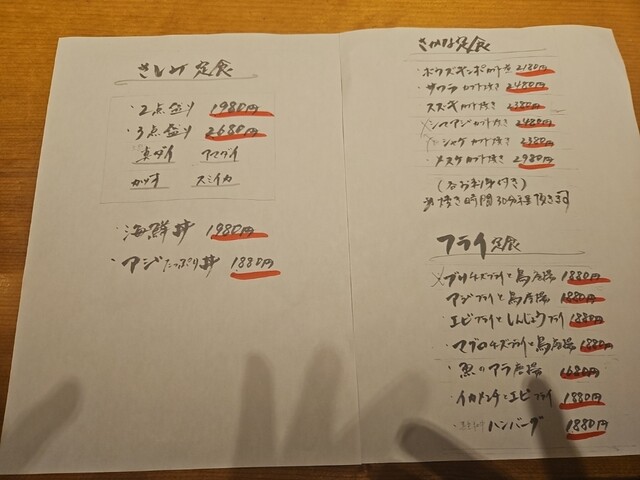 さしみ定食
・2点盛り 1980円
・3点盛り 2680円
真ダイ アマダイ
カツオ スミイカ
・海鮮丼 1980円
・アジたっぷり丼 1880円
さかな定食
・ボウズギンポカブト煮 2180円
・サワラカブト焼き 2480円
スズキカブト焼き 2380円
シマアジカブト焼き 2480円
シャケカブト焼き 2380円
・メヌケカブト焼き 2980円
(各お刺身付き)
焼き時間30分程頂きます
フライ定食
ブリチーズフライと鳥唐揚 1880円
アジフライと鳥唐揚 1880円
・エビフライとしんじょうフライ 1880円
・マグロチーズフライと鳥唐揚 1880円
・魚のアラ唐揚 1680円
・イカメンチとエビフライ 1880円
ハンバーグ 1880円